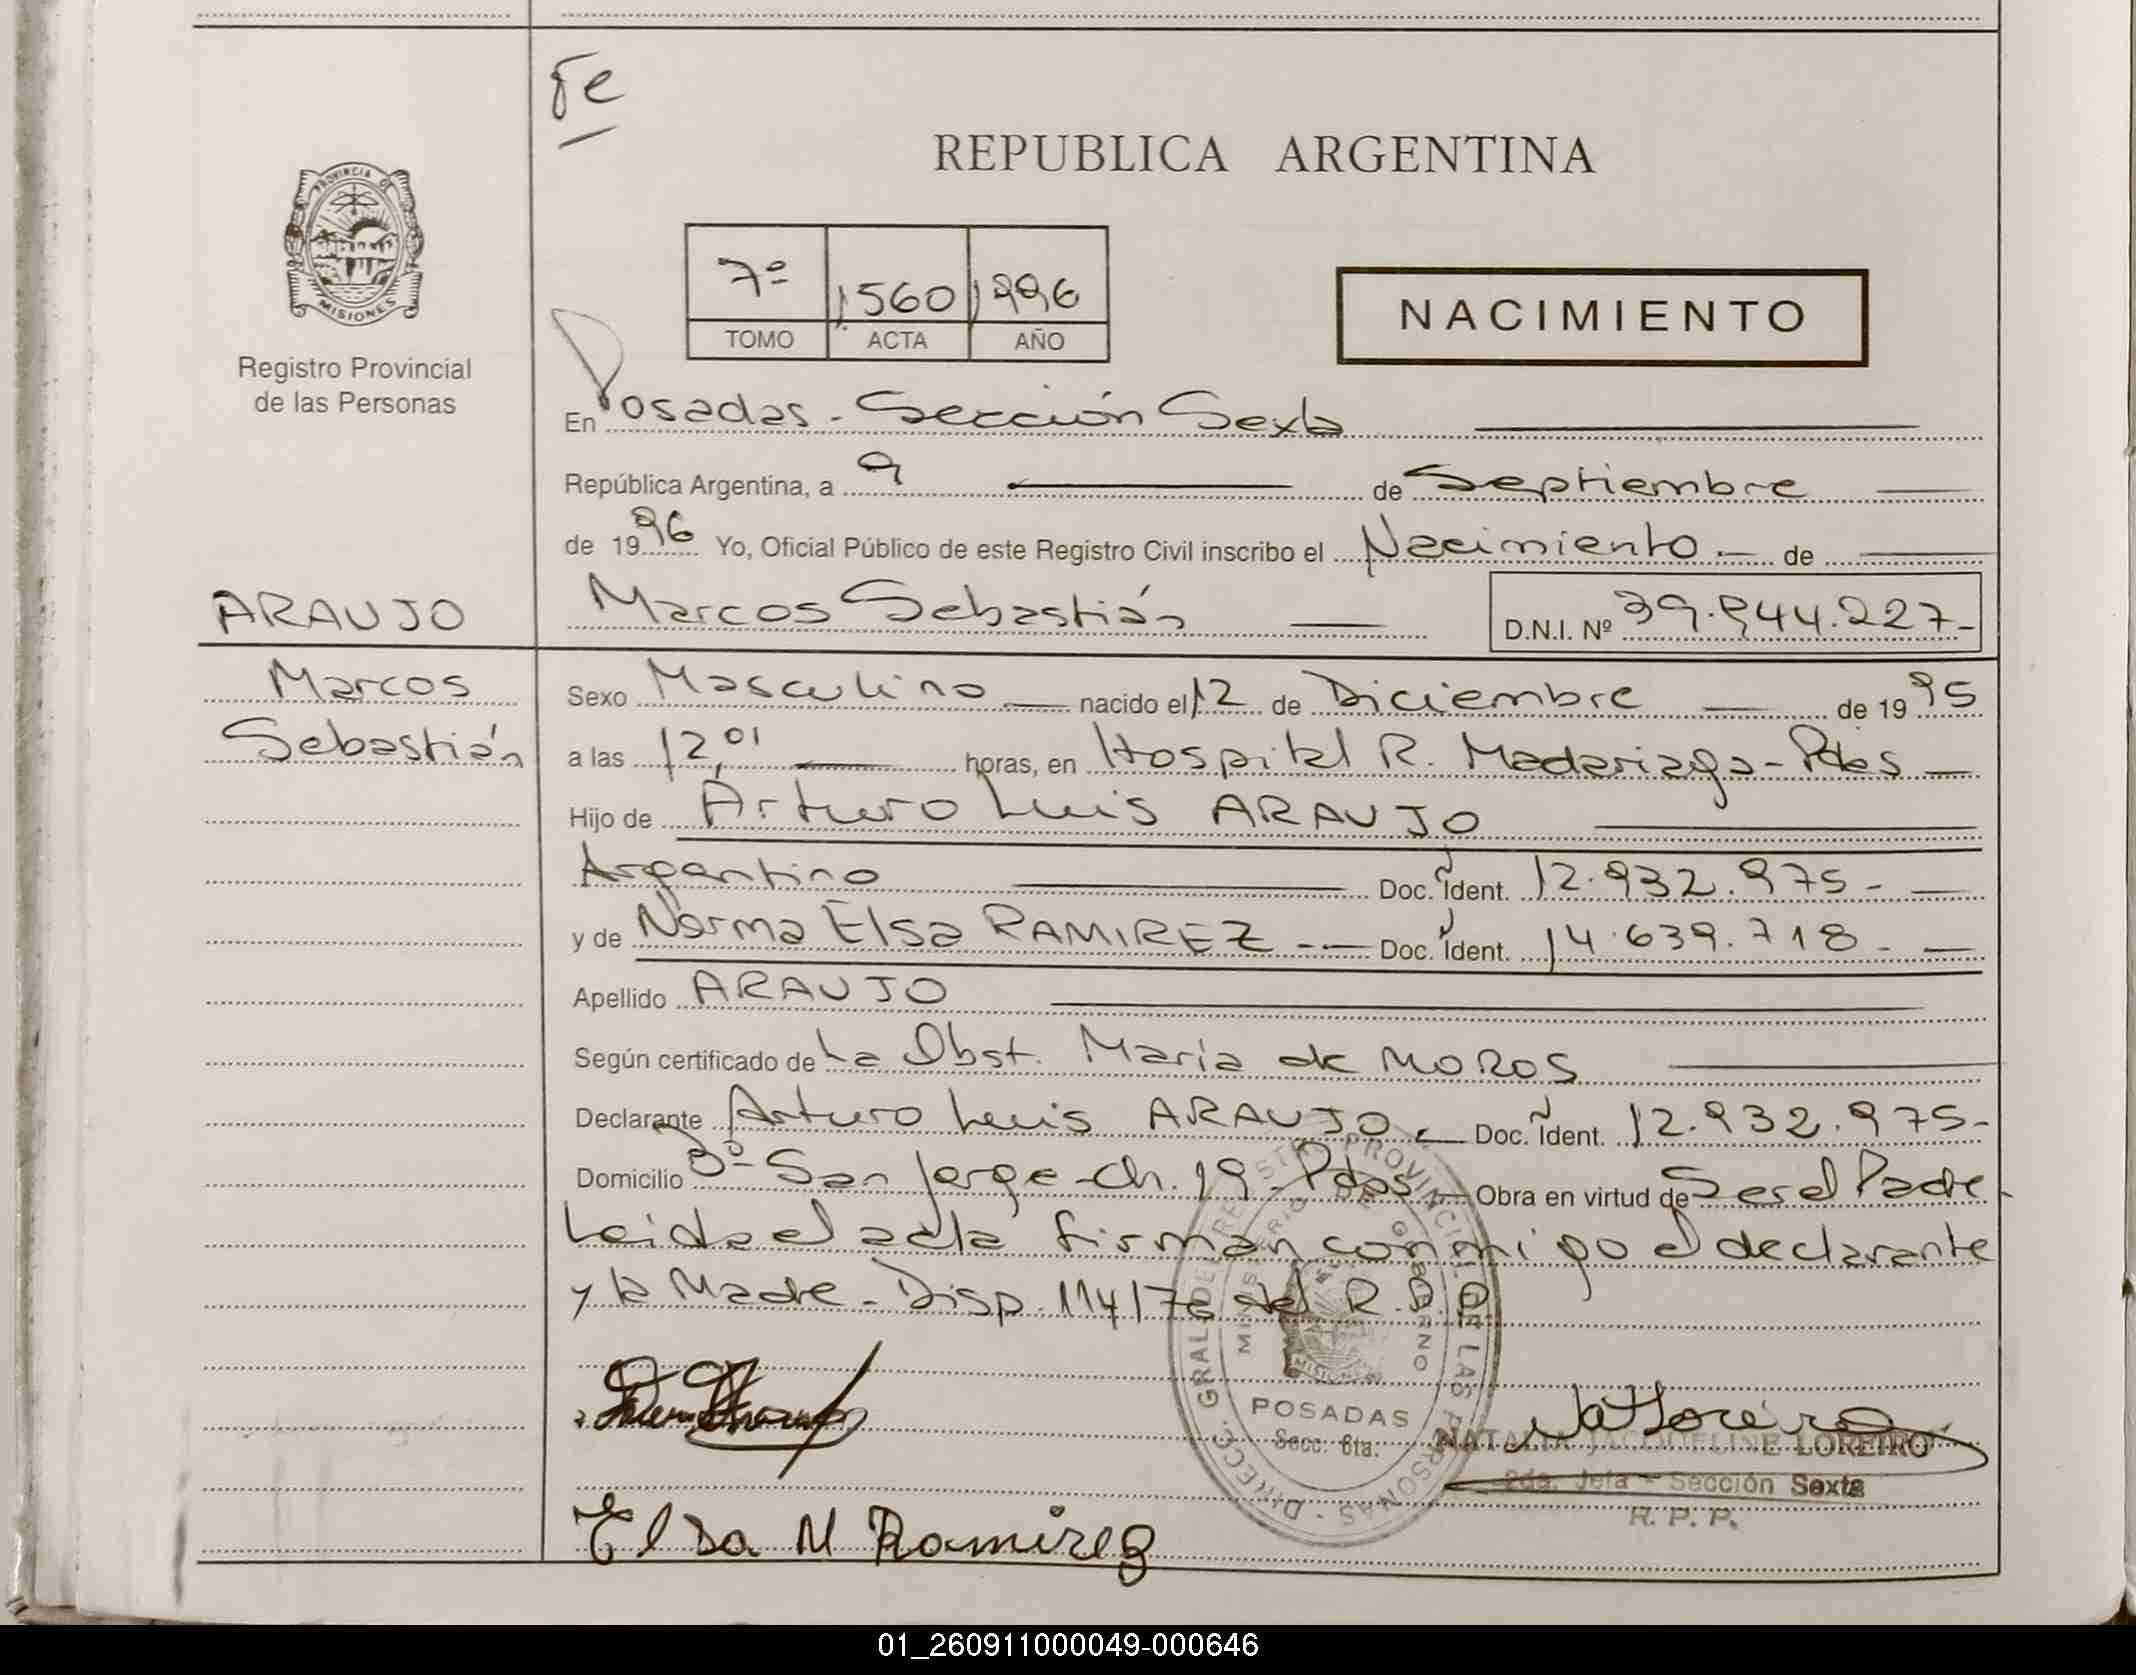 Fe
REPUBLICA ARGENTINA
PROVINCIA DE
MISIONES
7º 1.560 1996
TOMO ACTA AÑO
NACIMIENTO
Registro Provincial
de las Personas
En Posadas - Sección Sexta
República Argentina, a 9 de Septiembre
de 1996 Yo, Oficial Público de este Registro Civil inscribo el Nacimiento.- de
ARAUJO
Marcos Sebastián
D.N.I. Nº 39.944.227-
Marcos
Sebastián
Sexo Masculino nacido el 12 de Diciembre de 1995
a las 12,01 horas, en Hospital R. Madariaga - Pdas
Hijo de Arturo Luis ARAUJO
Argentino Doc. Ident. 12.932.975-
y de Norma Elsa RAMIREZ Doc. Ident. 14.639.718-
Apellido ARAUJO
Según certificado de La Obst. María de MOROS
Declarante Arturo Luis ARAUJO Doc. Ident. 12.932.975-
Domicilio Bº San Jorge - Ch. 19 - Pdas Obra en virtud de Ser el Padre.
Leida el acta firman conmigo el declarante
y la Madre - Disp. 114/76 del R.P.P.
DIRECC. GRAL. DEL REGISTRO PROVINCIAL DE LAS PERSONAS
MINISTERIO DE GOBIERNO
MISIONES
POSADAS
Secc. 6ta.
NATALIA JACQUELINE LOREIRO
2da. Jefa - Sección Sexta
R. P. P.
Elsa N Ramirez
01_260911000049-000646